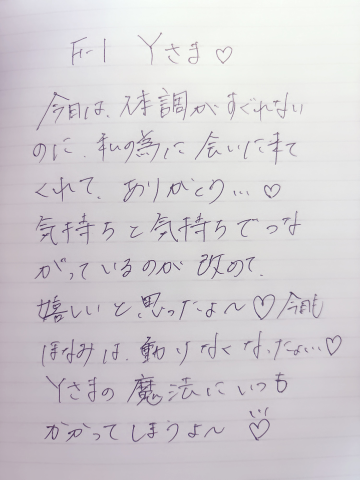 F-1 Yさま♡
今日は、体調がすぐれない
のに、私の為に会いに来て
くれて、ありがとう…♡
気持ちと気持ちでつな
がっているのが改めて、
嬉しいと思ったよ〜♡今日も
ほなみは、動けなくなったよ…♡
Yさまの魔法にいつも
かかってしまうよ〜♡